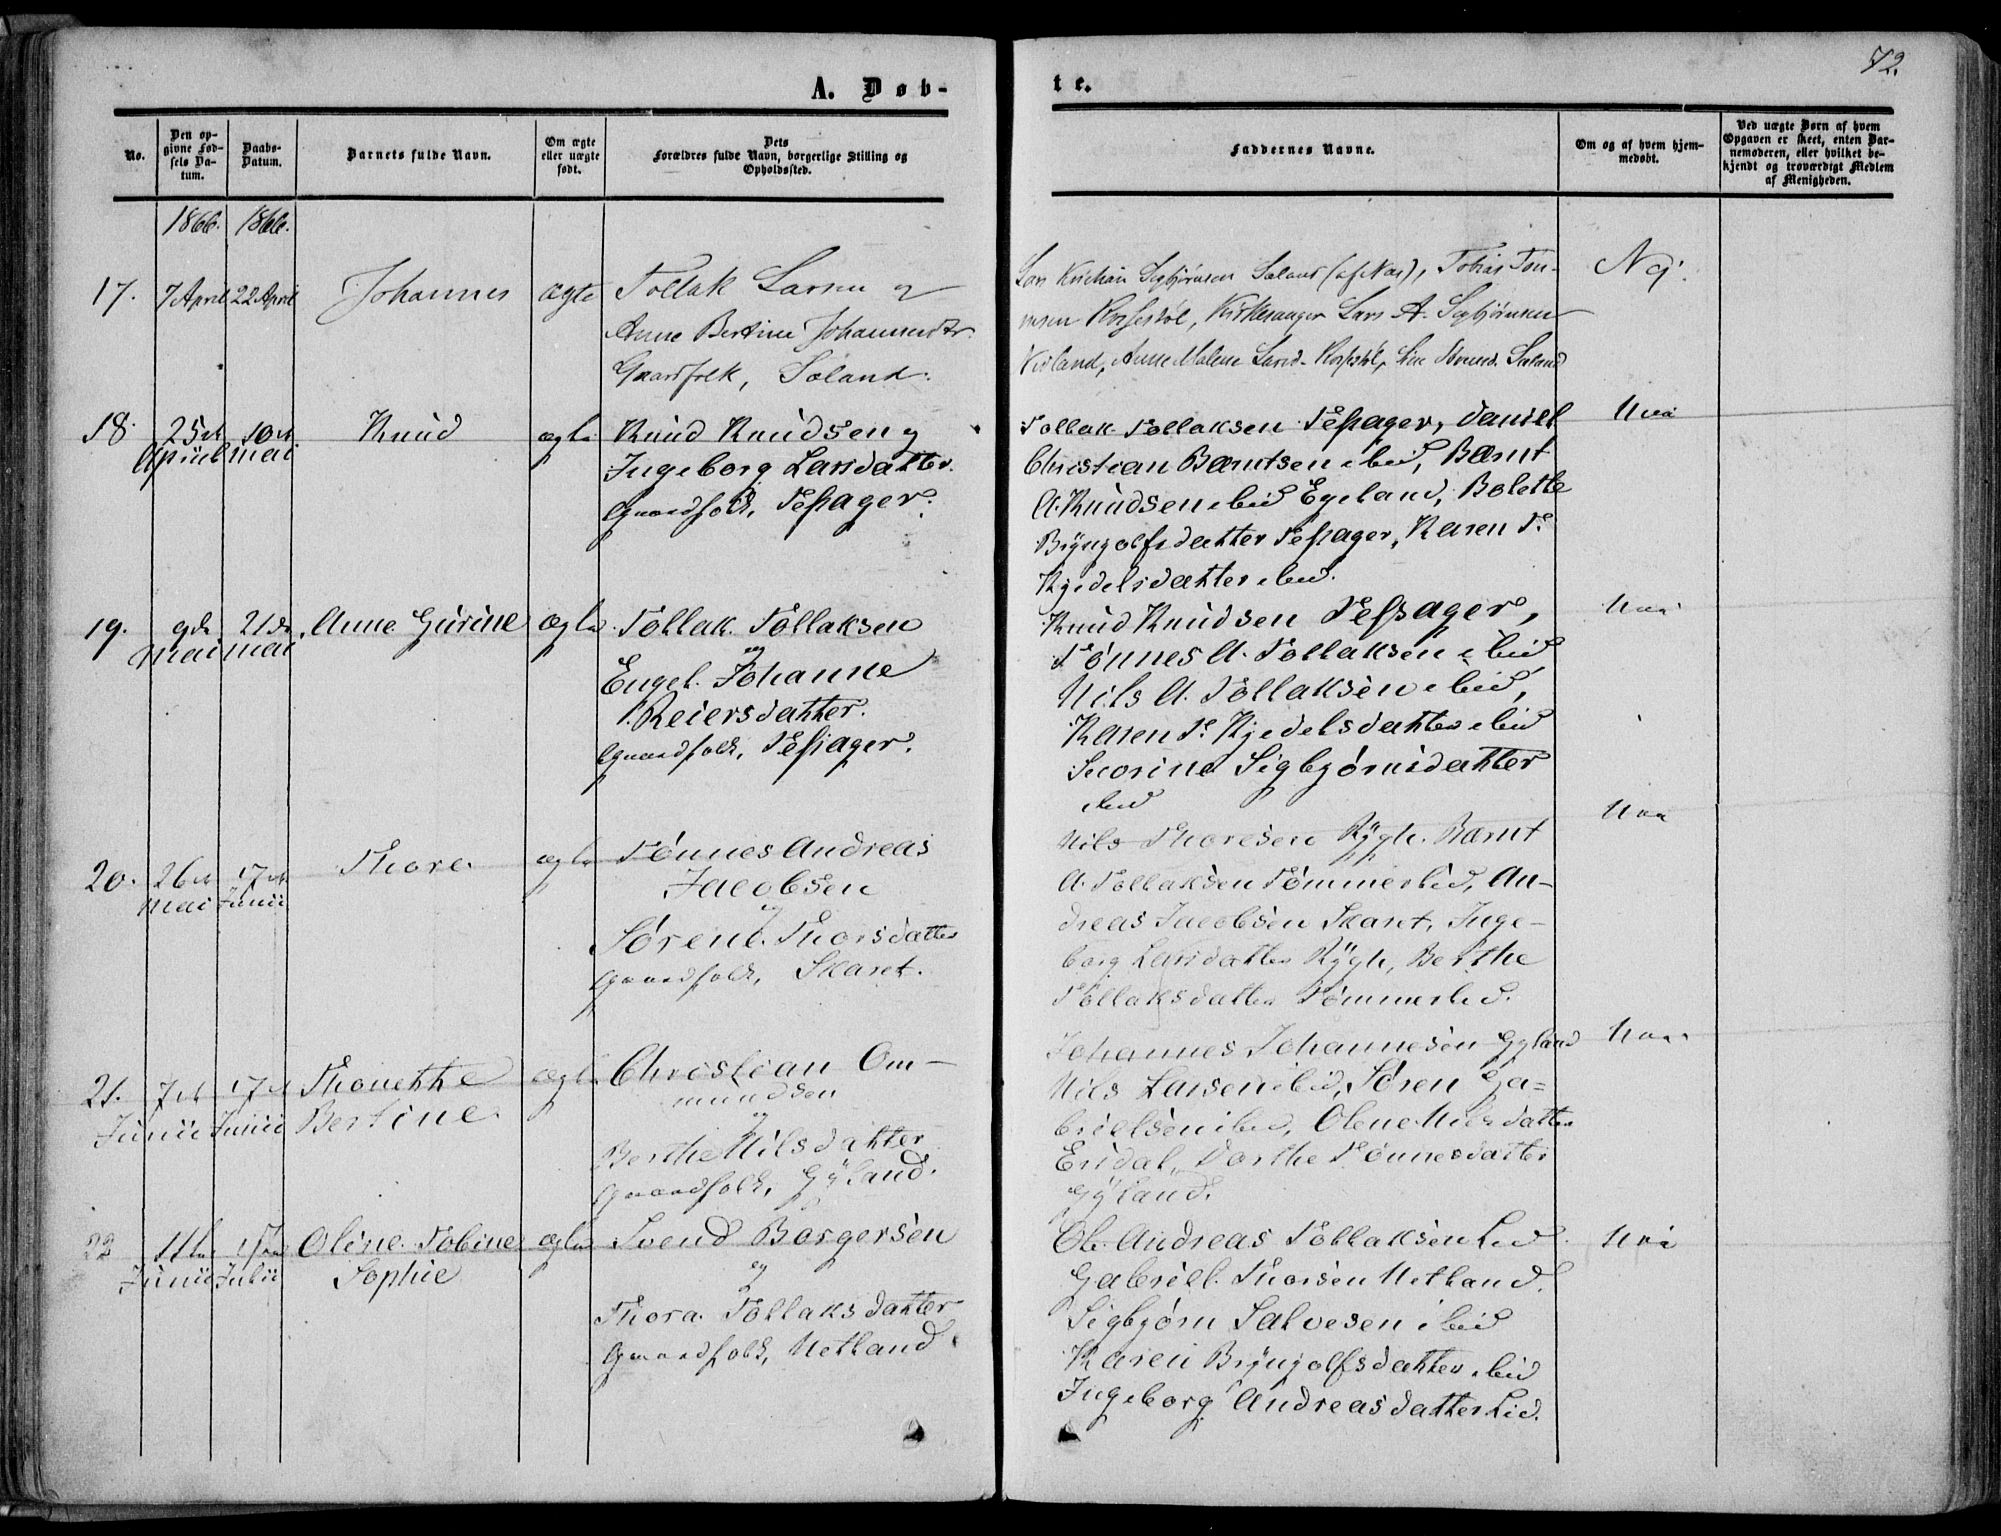 72.
A. Døb-
te.
No.
Den op-
givne Fød-
sels Da-
tum.
Daabs-
Datum.
Barnets fulde Navn.
Om ægte
eller uægte
født.
Dets
Forældres fulde Navn, borgerlige Stilling og
Opholdssted.
Faddernes Navne.
Om og af hvem hjem-
medøbt.
Ved uægte Børn af hvem
Opgaven er skeet, enten Bar-
nemoderen, eller hvilket be-
kjendt og troværdigt Medlem
af Menigheden.
1866. 1866.
17. 7 April 22 April Johannes ægte Tollak Larsen og
Anne Bertine Johannesdtr.
Gaardfolk, Søland.
Lars Kristian Sigbjørnsen Søland (af Næs), Tobias Tøn-
nesen Kirkesanger Lars A. Sigbjørnsen
Anne Malene Larsd.
Nej.
18. 25de 10de Knud ægte Knud Knudsen og
April mai Ingeborg Larsdatter.
Gaardfolk, Tesager.
Tollak Tollaksen Tesager, Daniel
Christian Bærntsen ibid, Bærnt
A. Knudsen ibid Egeland, Bolette
Bryngolfsdatter Tesager, Karen T.
Kjedelsdatter ibid.
19. 9de 21de Anne Gurine ægte Tollak Tollaksen
mai mai og
Engel Johanne
Reiersdatter.
Gaardfolk, Tesager.
Knud Knudsen Tesager,
Tønnes A. Tollaksen ibid
Nils A. Tollaksen ibid,
Karen T. Kjedelsdatter ibid
Sigbjørnsdatter
ibid
20. 26de 17de Thore ægte Tønnes Andreas
Mai Junii Jacobsen
og
Sørene Thorsdatter
Gaardfolk, Skaret.
Nils Thoresen Rygh. Bærnt
A. Tollaksen Tømmerlid, An-
dreas Jacobsen Skaret, Inge-
borg Larsdatter Rygh, Berthe
Tollaksdatter Tømmerlid.
21. 7de 17de Thonette ægte Christian Om-
Junii Junii Bertine mundsen
og
Berthe Nilsdatter
Gaardfolk, Gyland.
Johannes Johannesen Gyland
Nils Larsen ibid, Søren Ga-
brielsen ibid, Olene Nilsdatter
Eridal, Dorthe Tønnesdatter
Gyland.
22 11te Oline Tobine ægte Svend Borgersen
Junii Julii Sophie og
Thora Tollaksdatter
Gaardfolk, Netland
Ole Andreas Tollaksen Lid
Gabriel Thorsen Netland.
Sigbjørn Salvesen ibid
Karen Bryngolfsdatter ibid
Ingeborg Andreasdatter Lid.